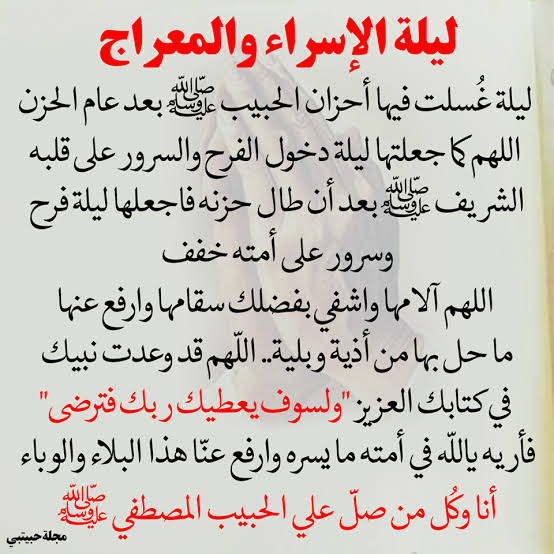 ليلة الإسراء والمعراج
ليلة غُسلت فيها أحزان الحبيب ﷺ بعد عام الحزن
اللهم كما جعلتها ليلة دخول الفرح والسرور على قلبه
الشريف ﷺ بعد أن طال حزنه فاجعلها ليلة فرح
وسرور على أمته خفف
اللهم آلامها واشفي بفضلك سقامها وارفع عنها
ما حل بها من أذية وبلية.. اللّهم قد وعدت نبيك
في كتابك العزيز "ولسوف يعطيك ربك فترضى"
فأريه ياللّه في أمته ما يسره وارفع عنّا هذا البلاء والوباء
أنا وكُل من صلّ علي الحبيب المصطفي ﷺ
مجلة حبيتبي